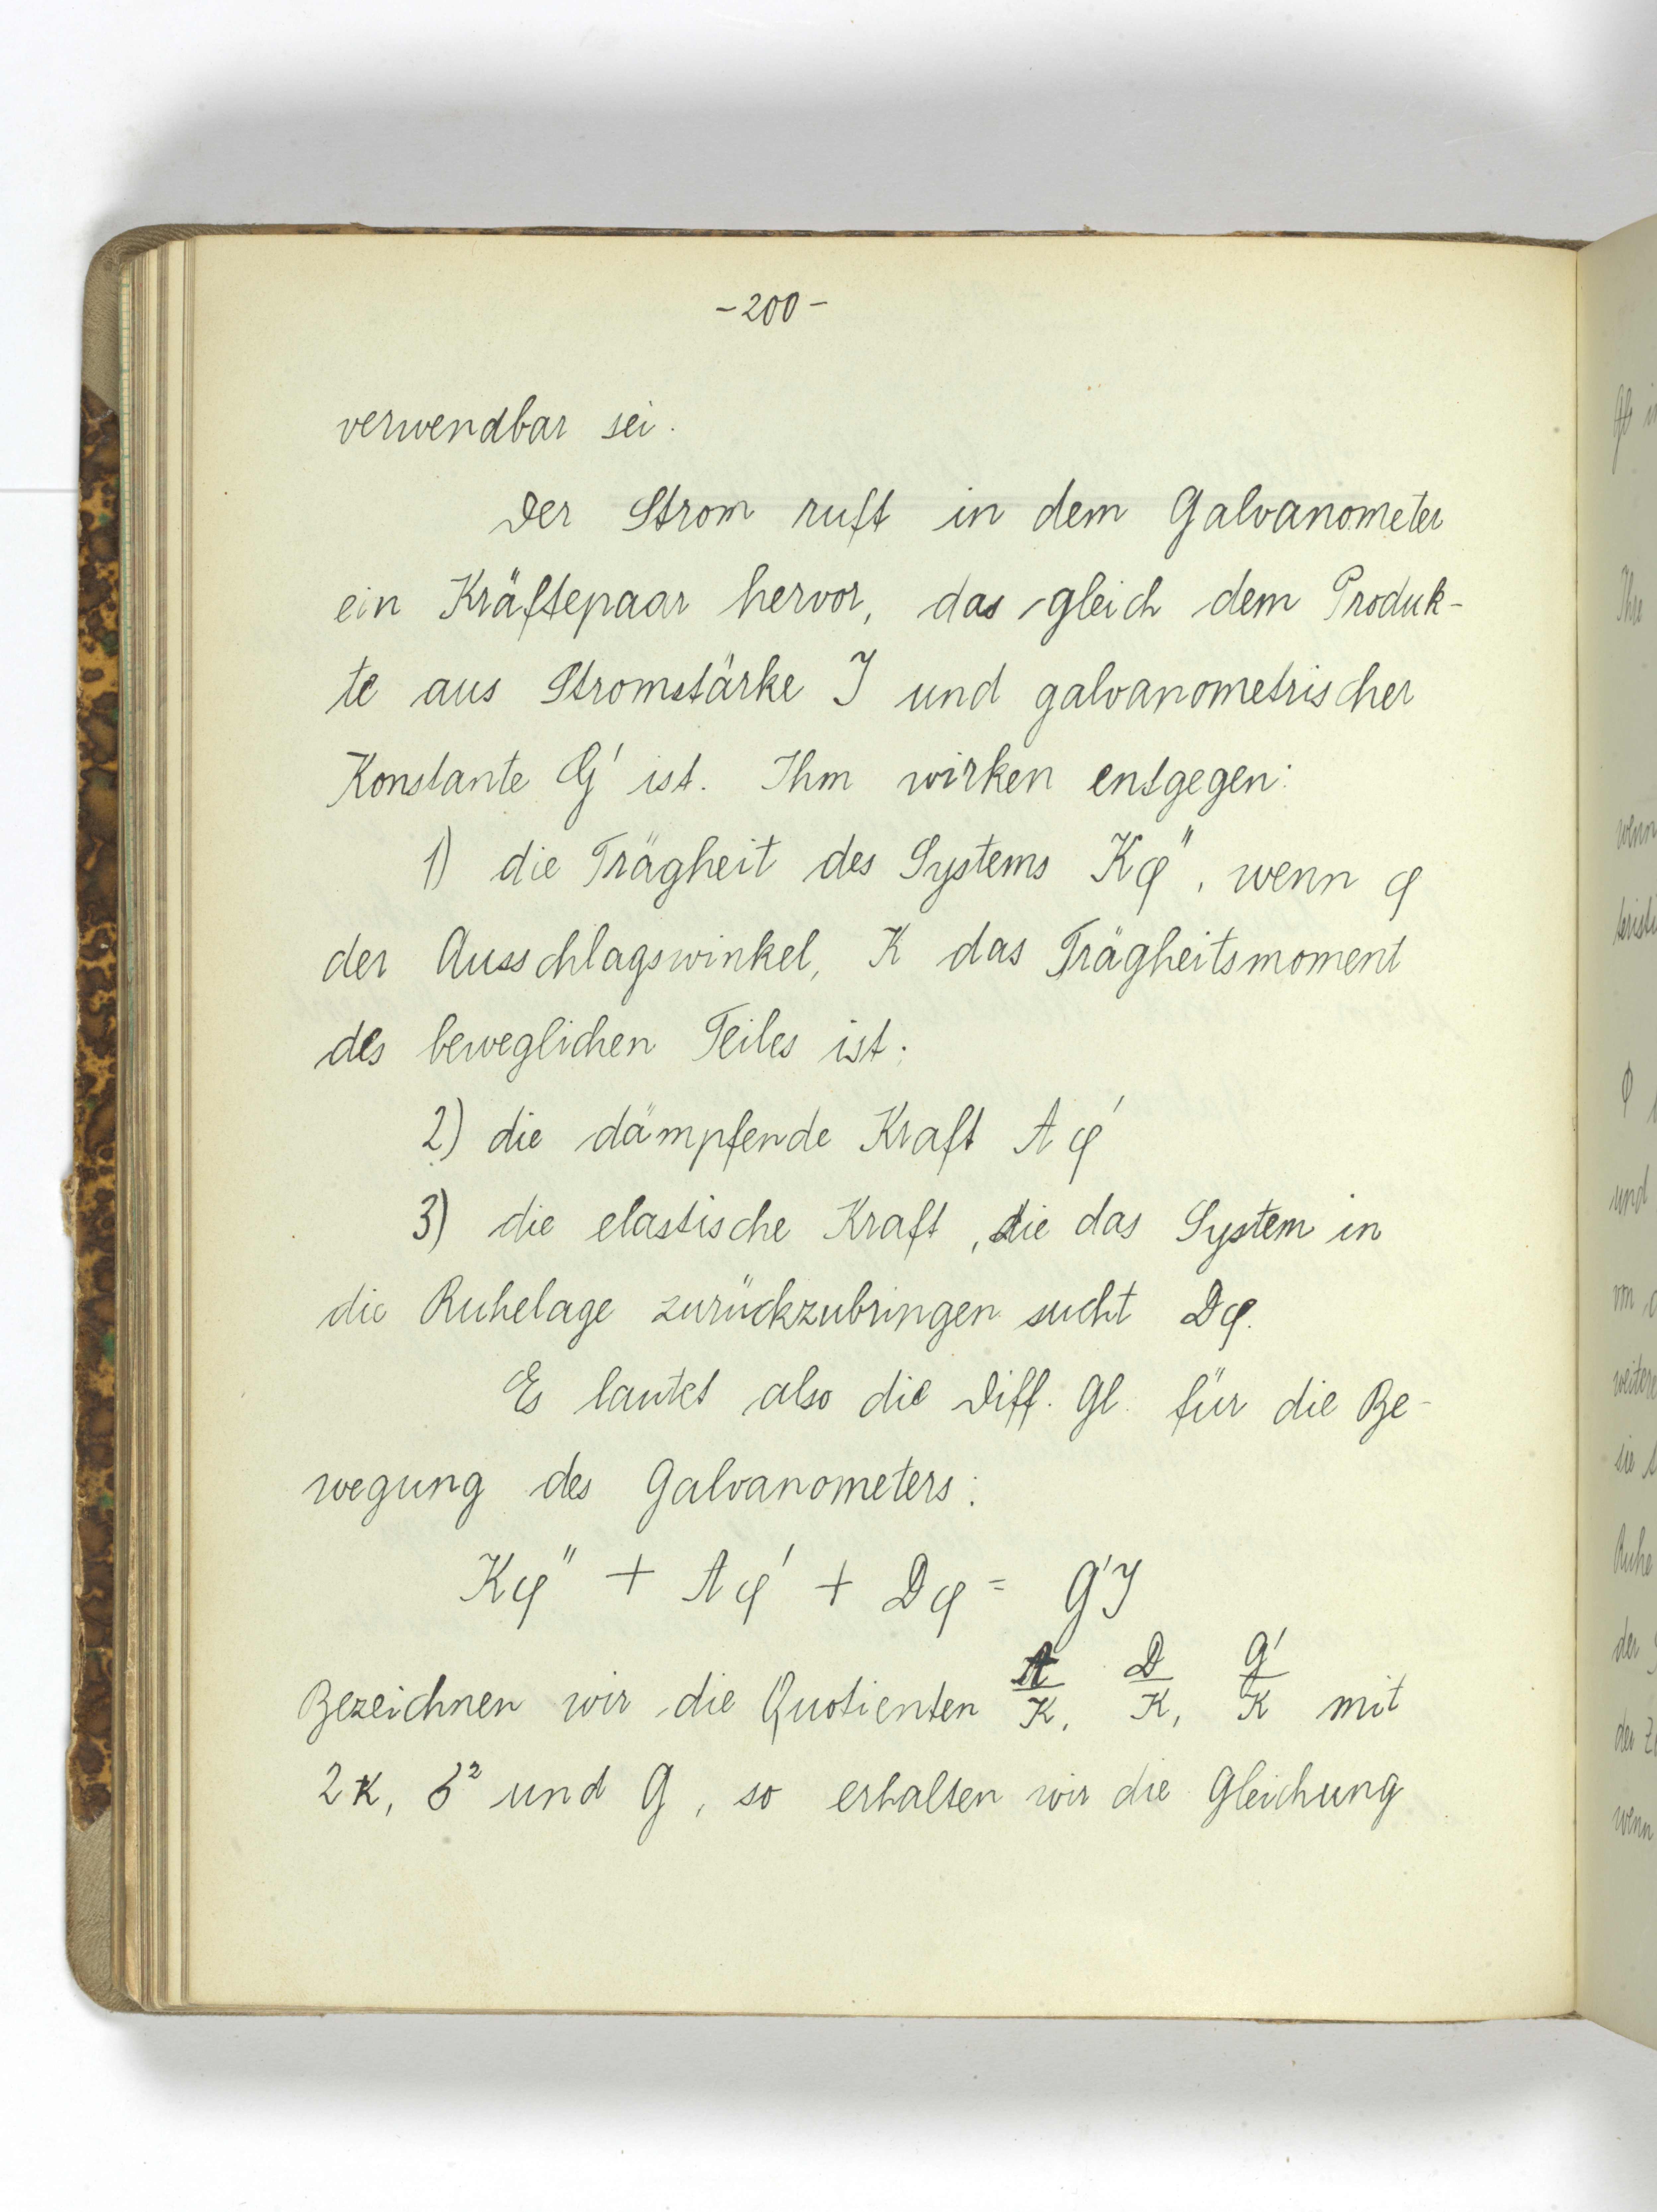 -200-
verwendbar sei.
Der Strom ruft in dem Galvanometer
ein Kräftepaar hervor, das gleich dem Produk-
te aus Stromstärke J und galvanometrischer
Konstante G' ist. Ihm wirken entgegen:
1) die Trägheit des Systems Kφ", wenn φ
der Ausschlagswinkel, K das Trägheitsmoment
des beweglichen Teiles ist;
2) die dämpfende Kraft Aφ'
3) die elastische Kraft, die das System in
die Ruhelage zurückzubringen sucht Dφ.
Es lautet also die Diff. Gl. für die Be-
wegung des Galvanometers:
Kφ" + Aφ' + Dφ = G'J
Bezeichnen wir die Quotienten A/K, D/K, G'/K mit
2κ, δ² und G, so erhalten wir die Gleichung